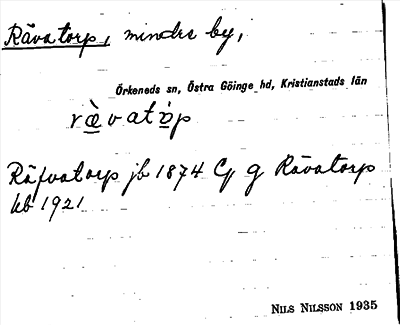 Rävatorp, mindre by,
Örkeneds sn, Östra Göinge hd, Kristianstads län
ræ̀vatȯp
Räfvatorp jb 1874 Cg g Rävatorp
kb 1921
NILS NILSSON 1935